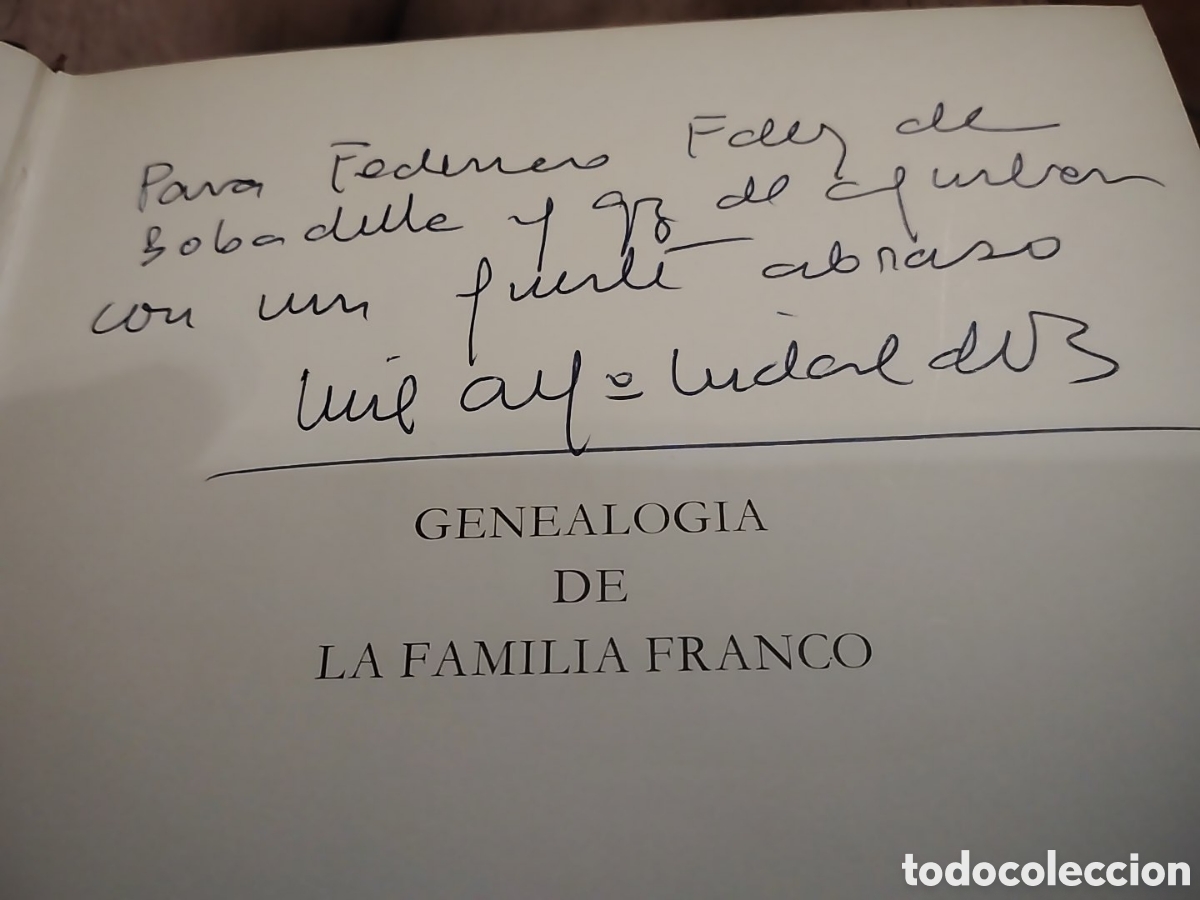 Para Federico Fdez de
Bobadilla y Gz de Aguilar
con un fuerte abrazo
Luis Alfº Vidal de B
GENEALOGIA
DE
LA FAMILIA FRANCO
todocoleccion